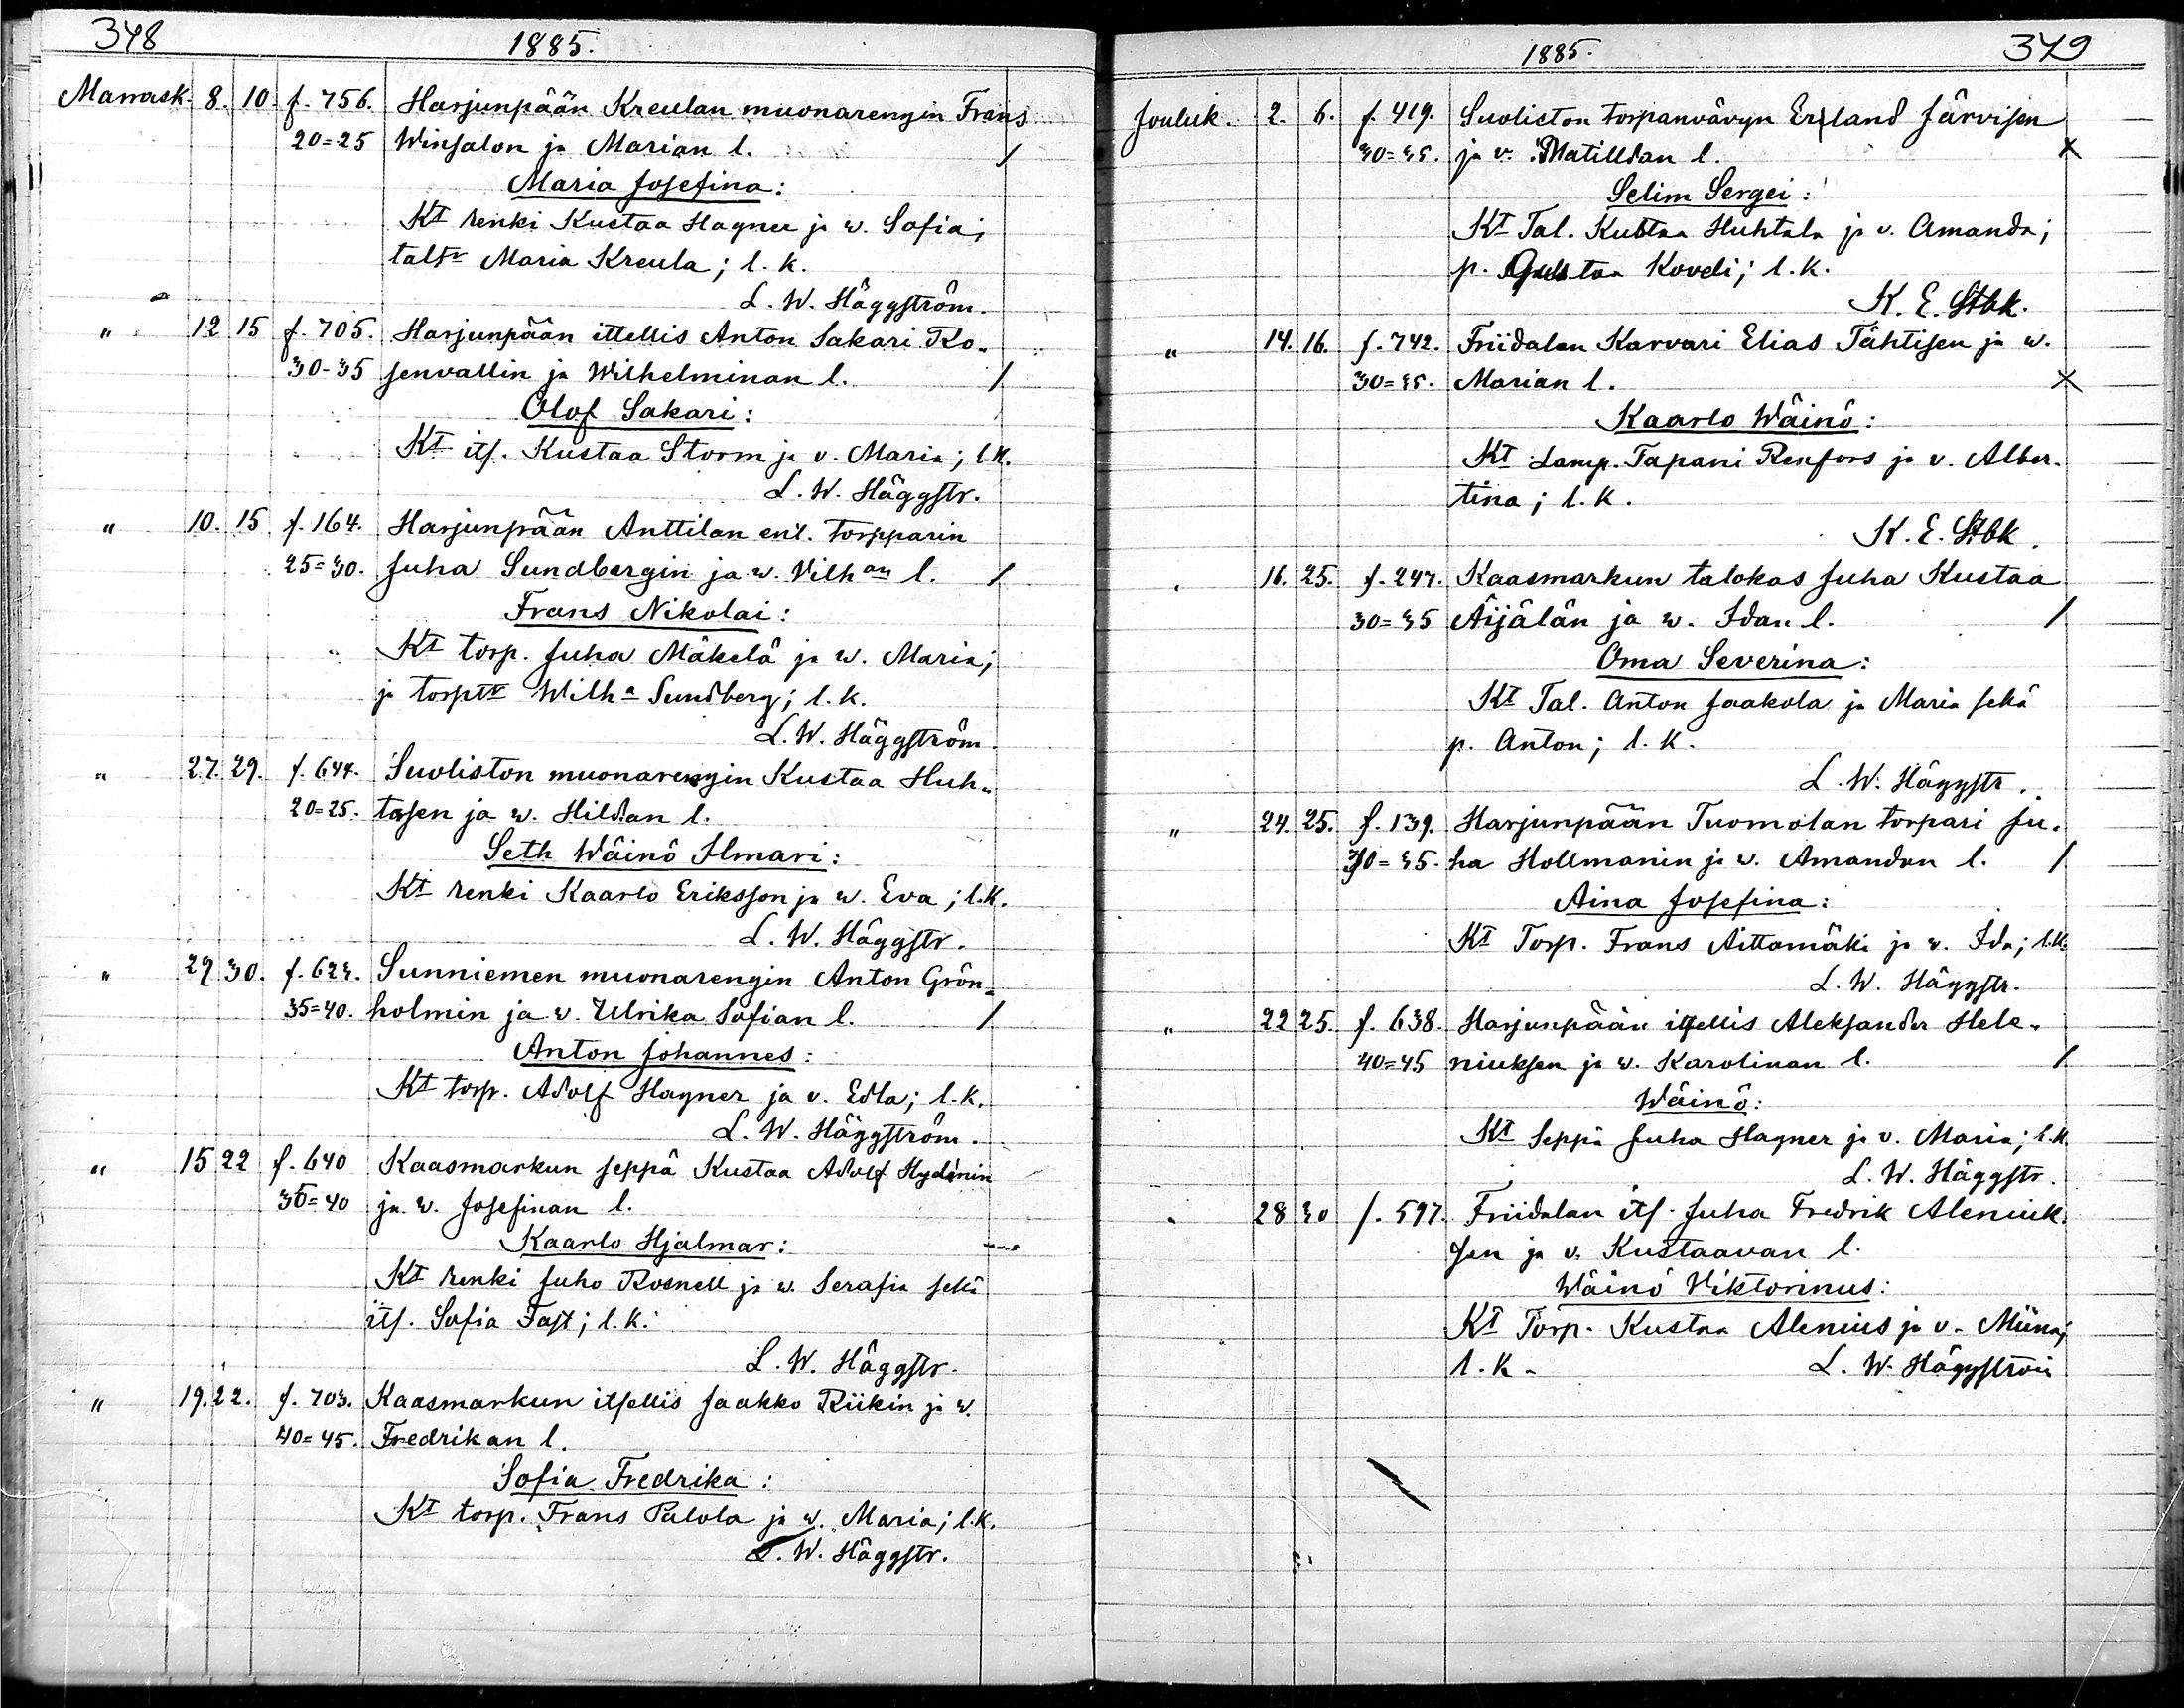 348
1885.
Marrask. 8. 10. f. 756. Harjunpään Kreulan muonarengin Frans
20=25 Winsalon ja Marian l. /
Maria Josefina:
Kt renki Kustaa Hagner ja w. Sofia;
taltr Maria Kreula; l. k.
L. W. Häggström.
" 12 15 f. 705. Harjunpään ittellis Anton Sakari Ro-
30-35 senvallin ja Wilhelminan l. /
Olof Sakari:
Kt its. Kustaa Storm ja v. Maria; l.k.
L. W. Häggstr.
" 10. 15 f. 164. Harjunpään Anttilan ent. torpparin
25=30. Juha Sundbergin ja w. Vilhan l. /
Frans Nikolai:
Kt torp. Juha Mäkelä ja w. Maria;
ja torptr Wilha Sundberg; l. k.
L. W. Häggström.
" 27. 29. f. 644. Suoliston muonarengin Kustaa Huh-
20=25. tasen ja w. Hildan l.
Seth Wäinö Ilmari:
Kt renki Kaarlo Eriksson ja w. Eva; l.k.
L. W. Häggstr.
" 29 30. f. 623. Sunniemen muonarengin Anton Grön-
35=40. holmin ja w. Ulrika Sofian l. /
Anton Johannes:
Kt torp. Adolf Hagner ja v. Edla; l. k.
L. W. Häggström.
" 15 22 f. 640 Kaasmarkun seppä Kustaa Adolf Hydénin
35=40 ja w. Josefinan l.
Kaarlo Hjalmar:
Kt renki Juho Rosnell ja w. Serafia sekä
its. Sofia Fast; l. k.
L. W. Häggstr.
" 19. 22. f. 703. Kaasmarkun itsellis Jaakko Riikin ja w.
40=45. Fredrikan l.
Sofia Fredrika:
Kt torp. Frans Palola ja w. Maria; l.k.
L. W. Häggstr.
1885.
379
Jouluk. 2. 6. f. 419. Suoliston torpanvävyn Erland Järvisen
30=35. ja v. Matilldan l. x
Selim Sergei:
Kt Tal. Kustaa Huhtala ja v. Amanda;
p. Gustaa Koveli; l. k.
K. E. Stbk.
" 14. 16. f. 742. Friidalan Karvari Elias Tähtisen ja w.
30=35. Marian l. x
Kaarlo Wäinö:
Kt Lamp. Tapani Renfors ja v. Alber-
tina; l. k.
K. E. Stbk.
" 16. 25. f. 247. Kaasmarkun talokas Juha Kustaa
30=35 Äijälän ja w. Idan l. /
Oma Severina:
Kt Tal. Anton Jaakola ja Maria sekä
p. Anton; l. k.
L. W. Häggstr.
" 24. 25. f. 139. Harjunpään Tuomolan torpari Ju-
30=35. ha Hollmanin ja w. Amandan l. /
Aina Josefina:
Kt Torp. Frans Aittamäki ja w. Ida; l.k.
L. W. Häggstr.
" 22 25. f. 638. Harjunpään itsellis Aleksander Hele-
40=45 niuksen ja w. Karolinan l. /
Wäinö:
Kt Seppä Juha Hagner ja v. Maria; l.k.
L. W. Häggstr.
" 28 30 f. 597. Friidalan its. Juha Fredrik Aleniuk-
sen ja v. Kustaavan l.
Wäinö Viktorinus:
Kt Torp. Kustaa Alenius ja v. Miina;
l. k. L. W. Häggström